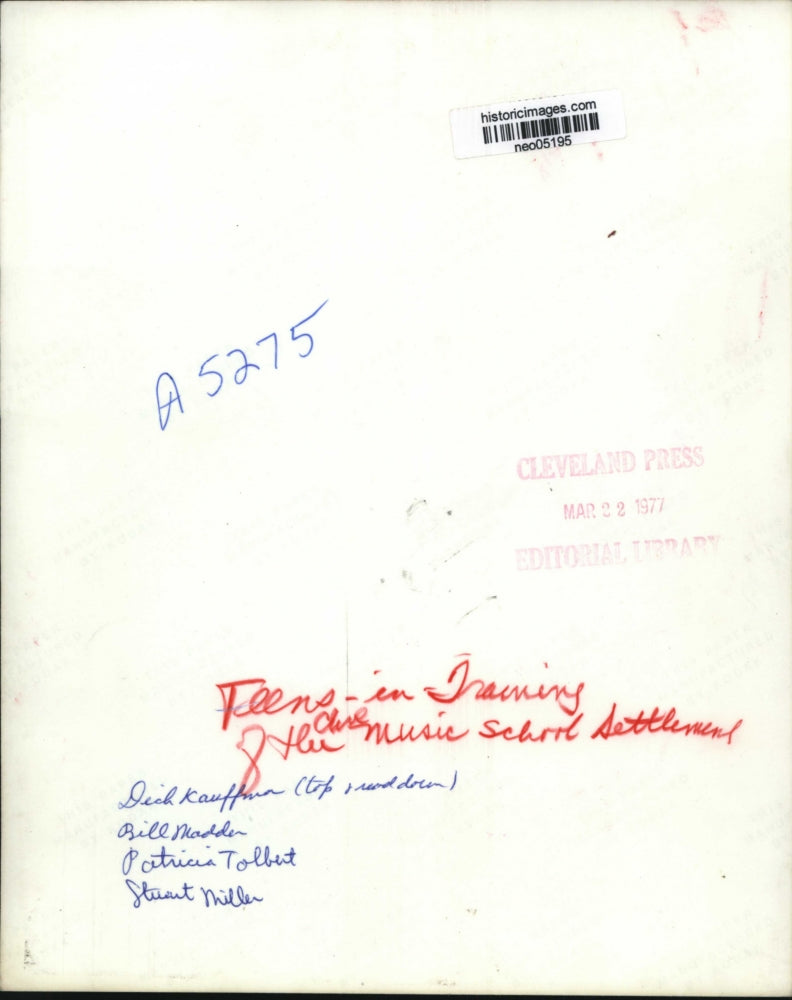 historicimages.com
neo05195
A 5275
CLEVELAND PRESS
MAR 22 1977
EDITORIAL LIBRARY
Teens-in-Training
of the Cleve Music School Settlement
Dick Kauffman (top, read down)
Bill Madden
Patricia Tolbert
Stuart Miller